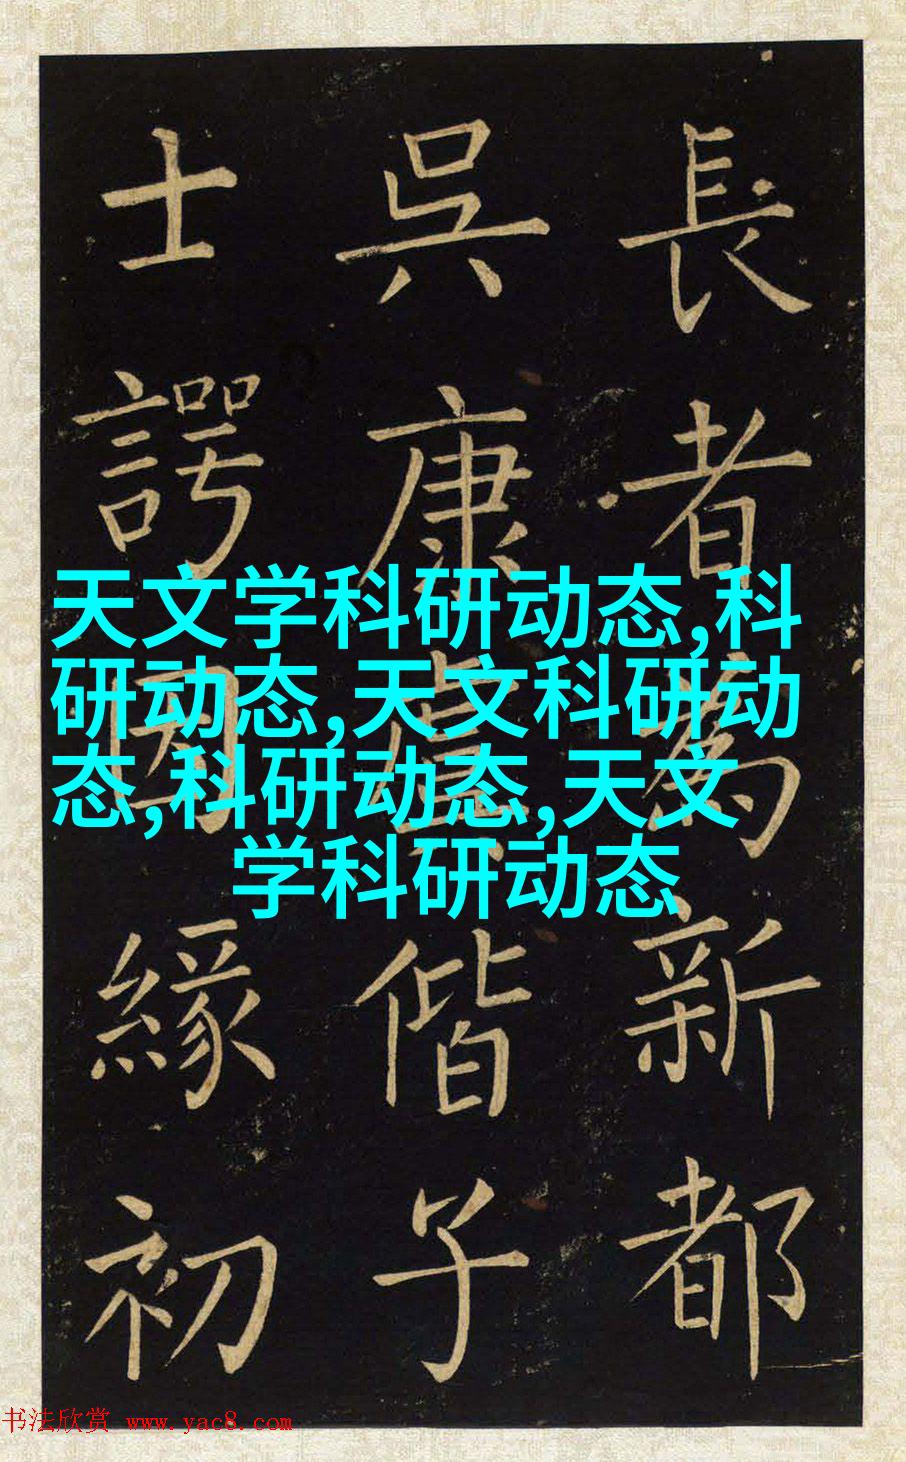 長者為新都
吳康虞偕子
士諤因緣初
天文学科研动态,科
研动态,天文科研动
态,科研动态,天文
学科研动态
书法欣赏 www.yac8.com